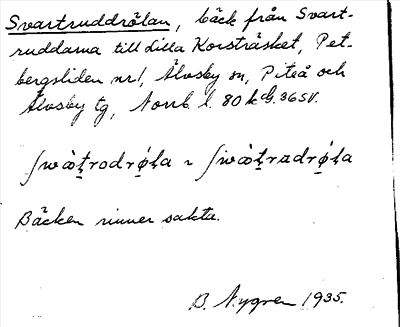 Svartruddrölan, bäck från Svart-
ruddarna till Lilla Korsträsket, Pet-
bergsliden nr 1, Älvsby sn, Piteå och
Älvsby tg, Norrb. l. 80 kdG. 36 SV.
Bäcken rinner sakta.
B. Nygren 1935.